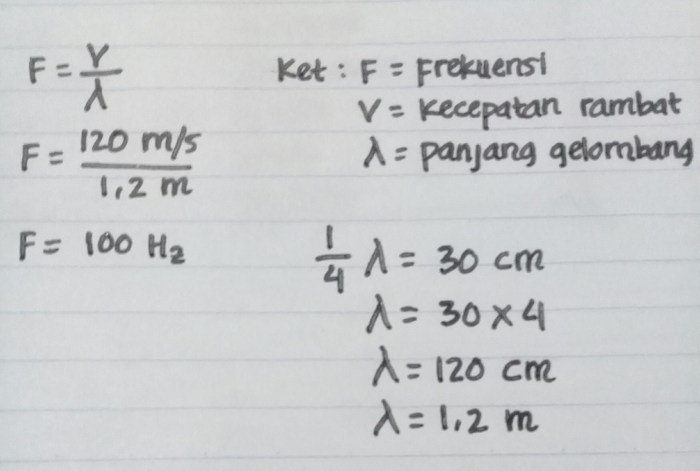 F = V/λ
F = 120 m/s / 1,2 m
F = 100 Hz
Ket : F = Frekuensi
V = Kecepatan rambat
λ = panjang gelombang
1/4 λ = 30 cm
λ = 30 x 4
λ = 120 cm
λ = 1,2 m